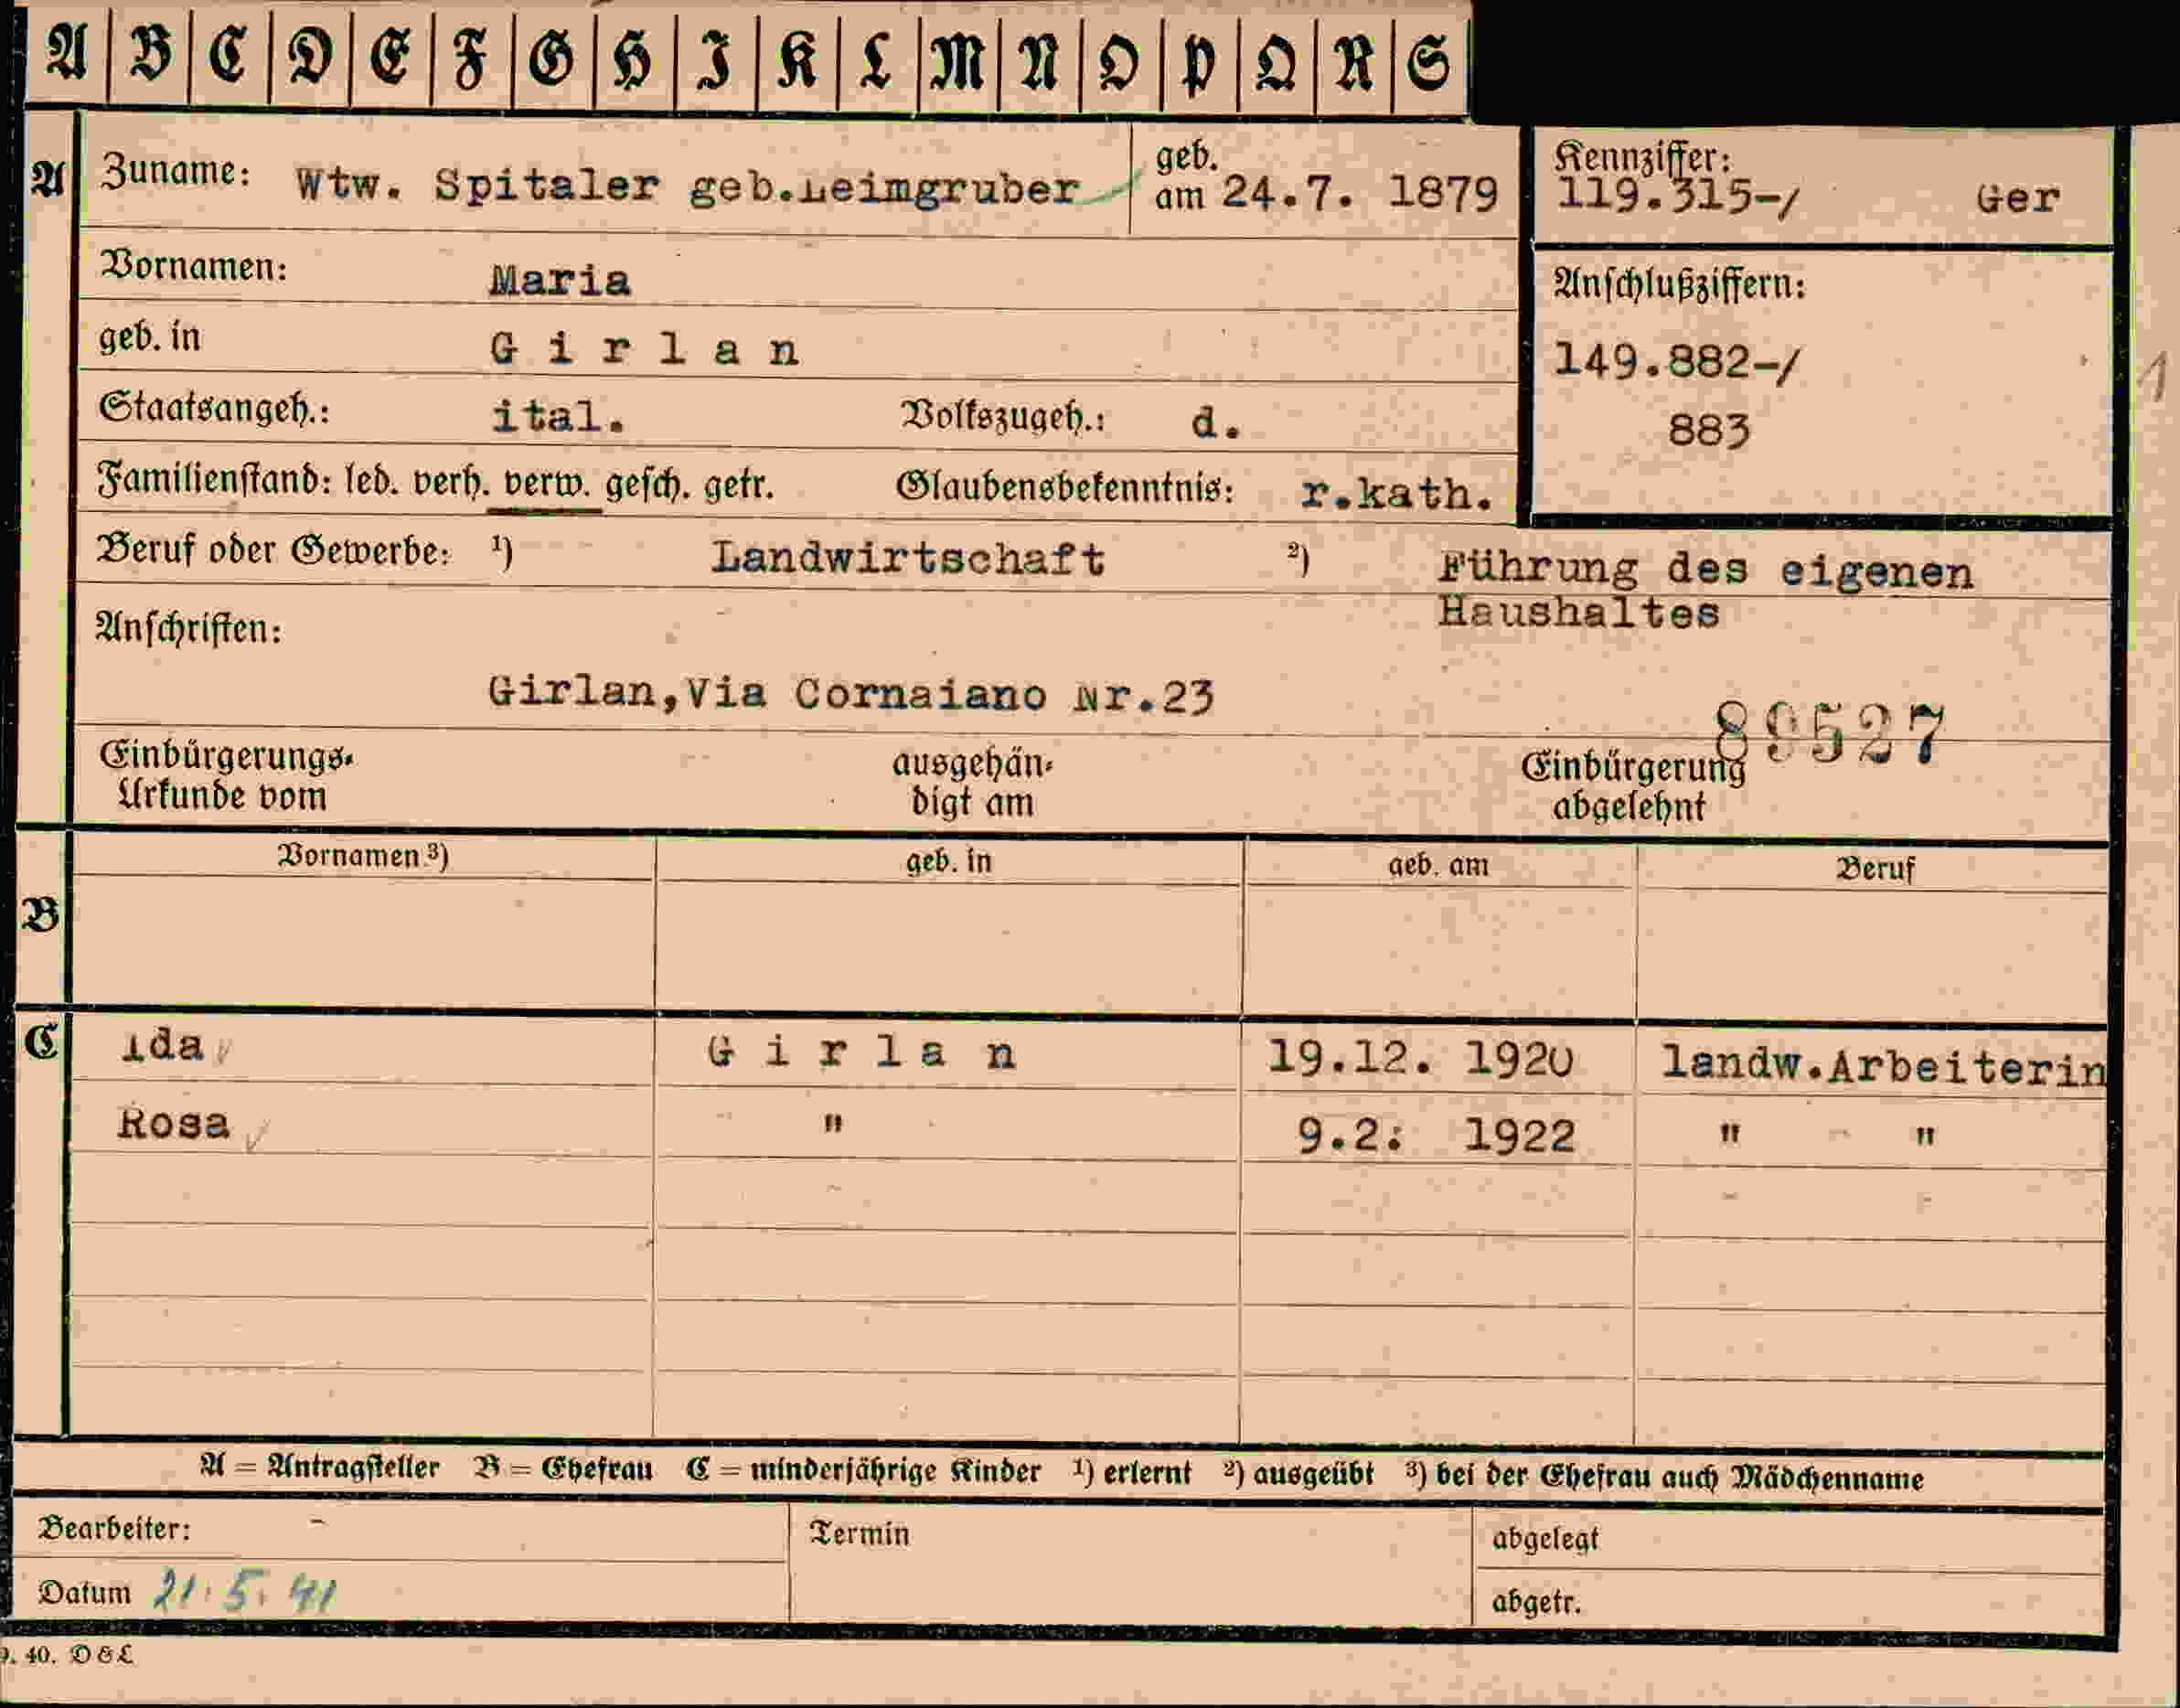 A B C D E F G H I K L M N O P Q R S
A Zuname: Wtw. Spitaler geb.Leimgruber geb. am 24.7. 1879
Kennziffer:
119.315-/ Ger
Vornamen: Maria
Anschlußziffern:
geb. in Girlan
149.882-/
Staatsangeh.: ital. Volkszugeh.: d.
883
1
Familienstand: led. verh. verw. gesch. getr. Glaubensbekenntnis: r.kath.
Beruf oder Gewerbe: ¹) Landwirtschaft ²) Führung des eigenen
Haushaltes
Anschriften:
Girlan,Via Cornaiano Nr.23
89527
Einbürgerungs-
Urkunde vom
ausgehän-
digt am
Einbürgerung
abgelehnt
Vornamen ³) geb. in geb. am Beruf
B
C Ida Girlan 19.12. 1920 landw.Arbeiterin
Rosa " 9.2: 1922 " "
A = Antragsteller B = Ehefrau C = minderjährige Kinder ¹) erlernt ²) ausgeübt ³) bei der Ehefrau auch Mädchenname
Bearbeiter: Termin abgelegt
Datum 21.5.41 abgetr.
40. D & L